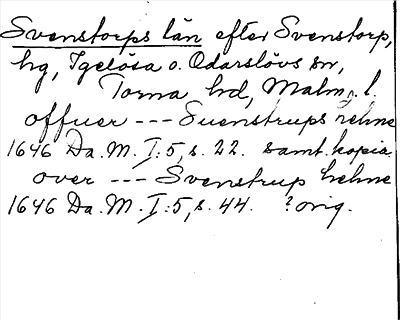 Svenstorps län efter Svenstorp,
hg, Igelösa o. Odarslövs sn,
Torna hd, Malm. l.
offuer --- Suenstrups lehne
1646 Da. M. I:5, s. 22. samt. kopia
over --- Svenstrup lehne
1646 Da. M. I:5, s. 44. ? orig.